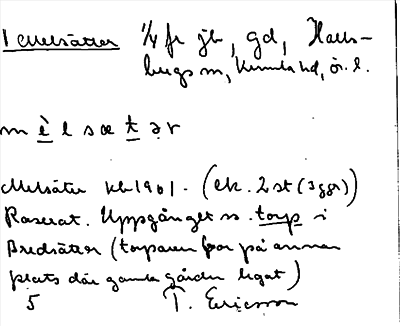 1 Melsätter 1/4 fr jb, gd, Halls-
bergs sn, Kumla hd, Ör. l.
m è l s æ t ə r
Melsäter kb 1901. (ek. 2 st (3 ggr))
Raserat. Uppgånget ss. torp i
Bredsätter (torparen bor på annan
plats där gamla gården legat)
5 T. Ericsson